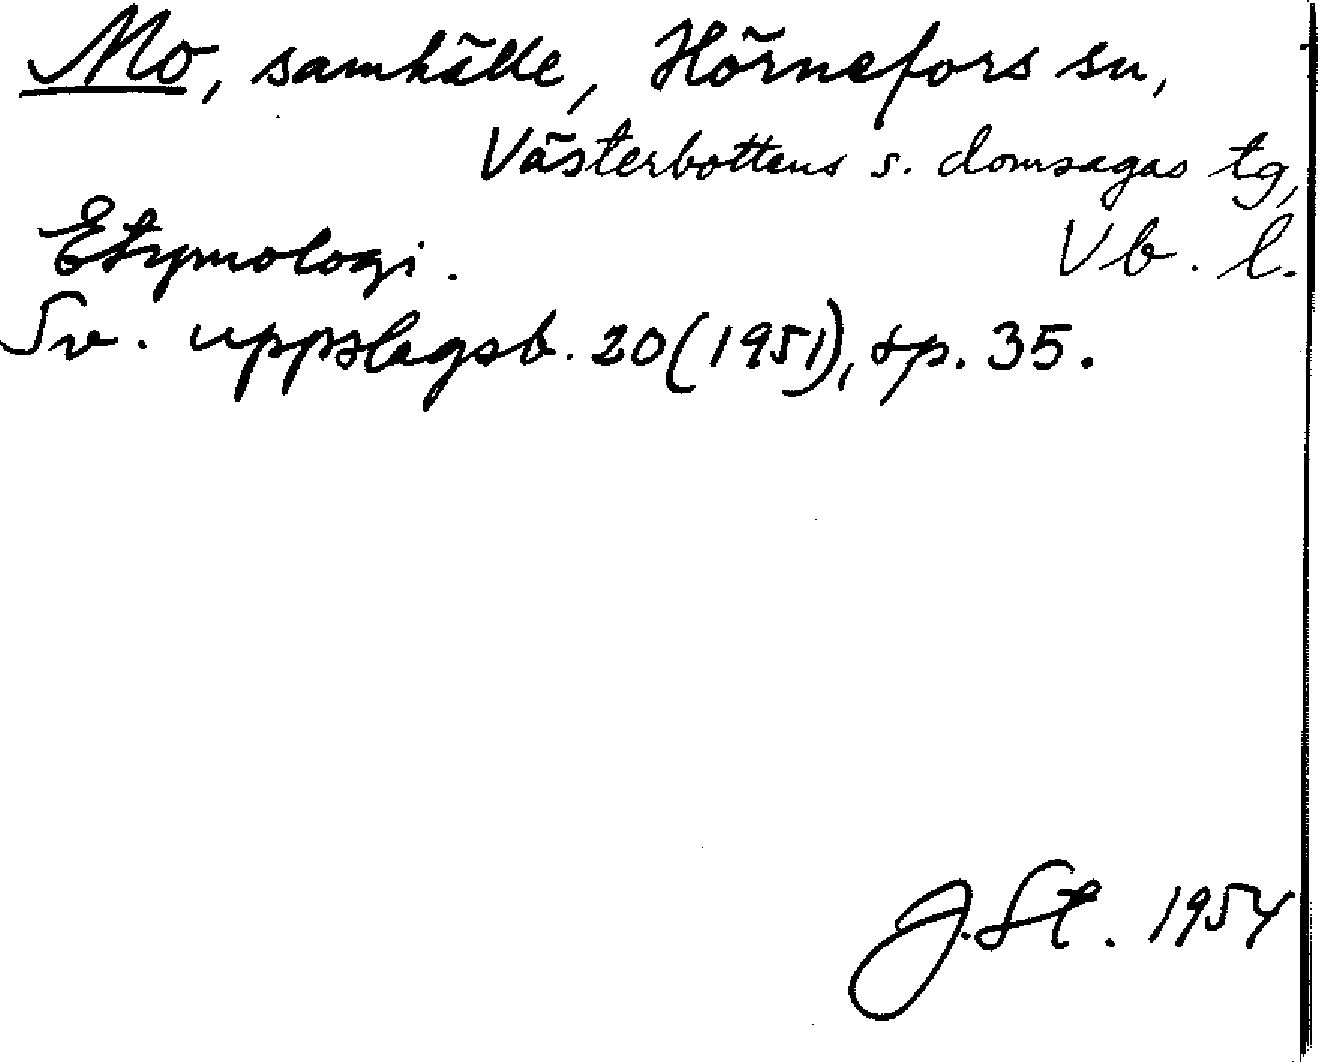 Mo, samhälle, Hörnefors sn,
Västerbottens s. domsagas tg,
Vb. l.
Etymologi.
Sv. uppslagsb. 20 (1951), sp. 35.
J. St. 1954